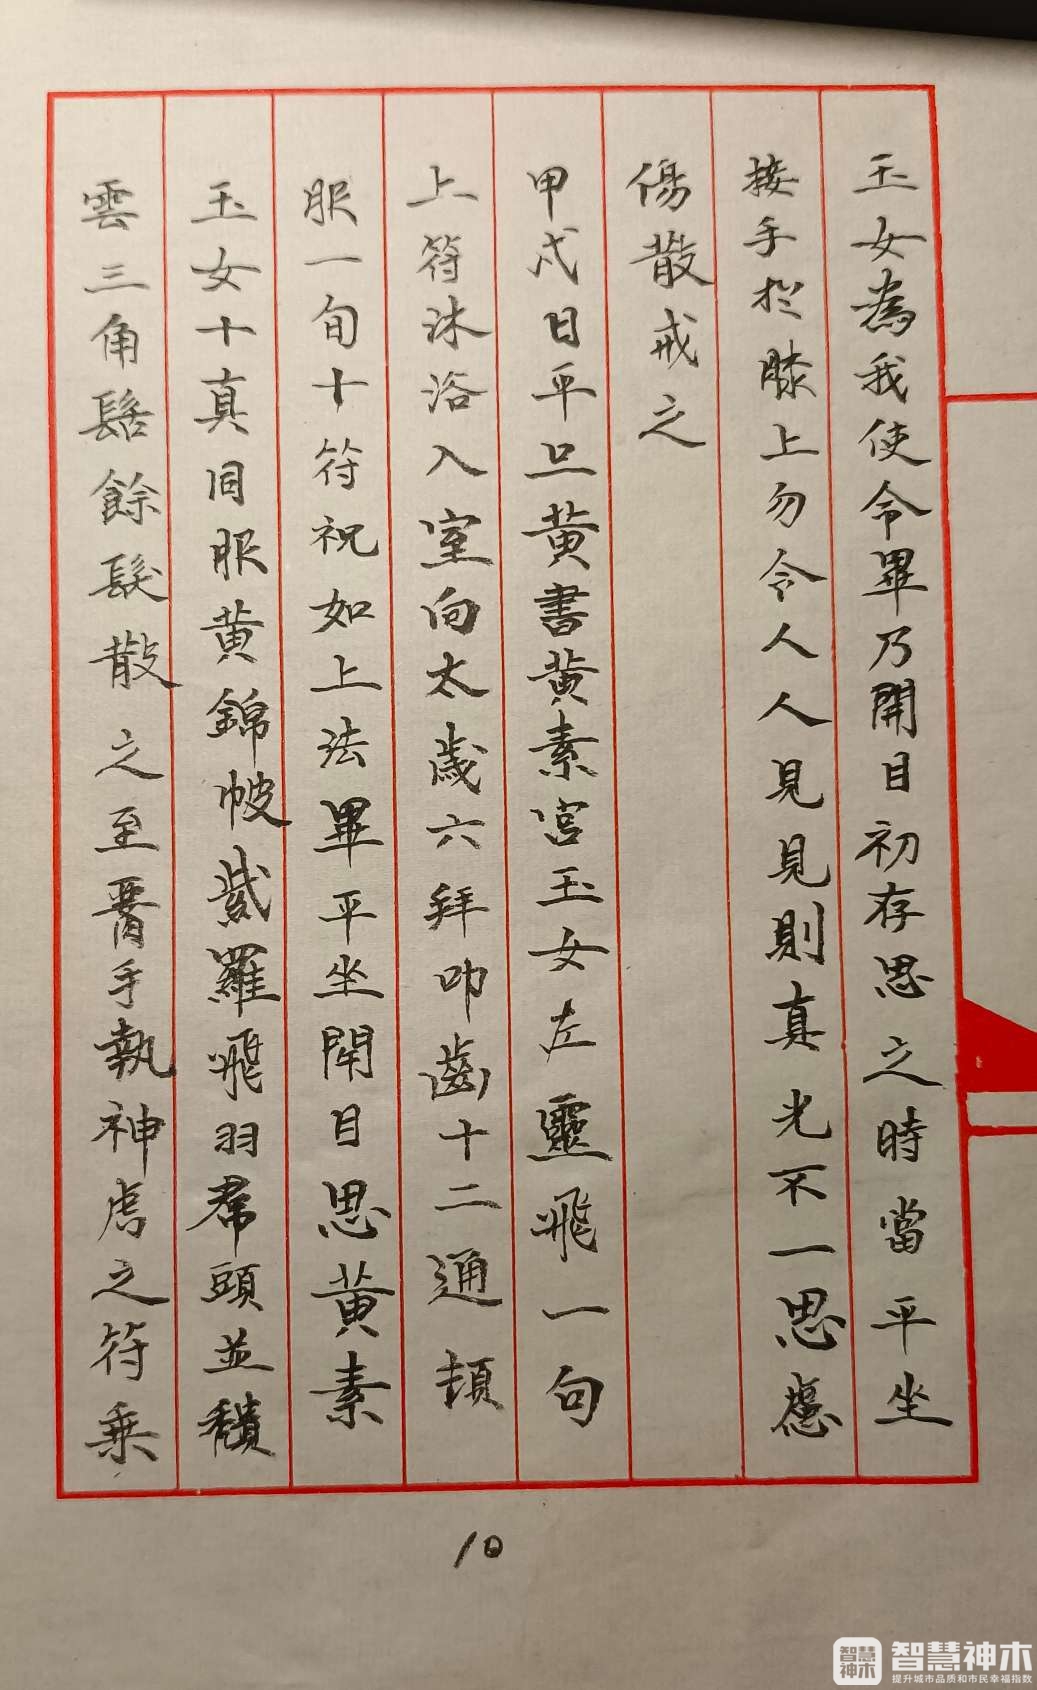 玉女為我使令畢乃開目初存思之時當平坐
接手於膝上勿令人人見見則真光不一思慮
傷散戒之
甲戌日平旦黄書黄素宮玉女左靈飛一旬
上符沐浴入室向太歲六拜叩齒十二通頓
服一旬十符祝如上法畢平坐閉目思黄素
玉女十真同服黄錦帔紫羅飛羽帬頭並穨
雲三角髻餘髮散之至署手執神虎之符乘
10
智慧神木
智慧神木
提升城市品质和市民幸福指数